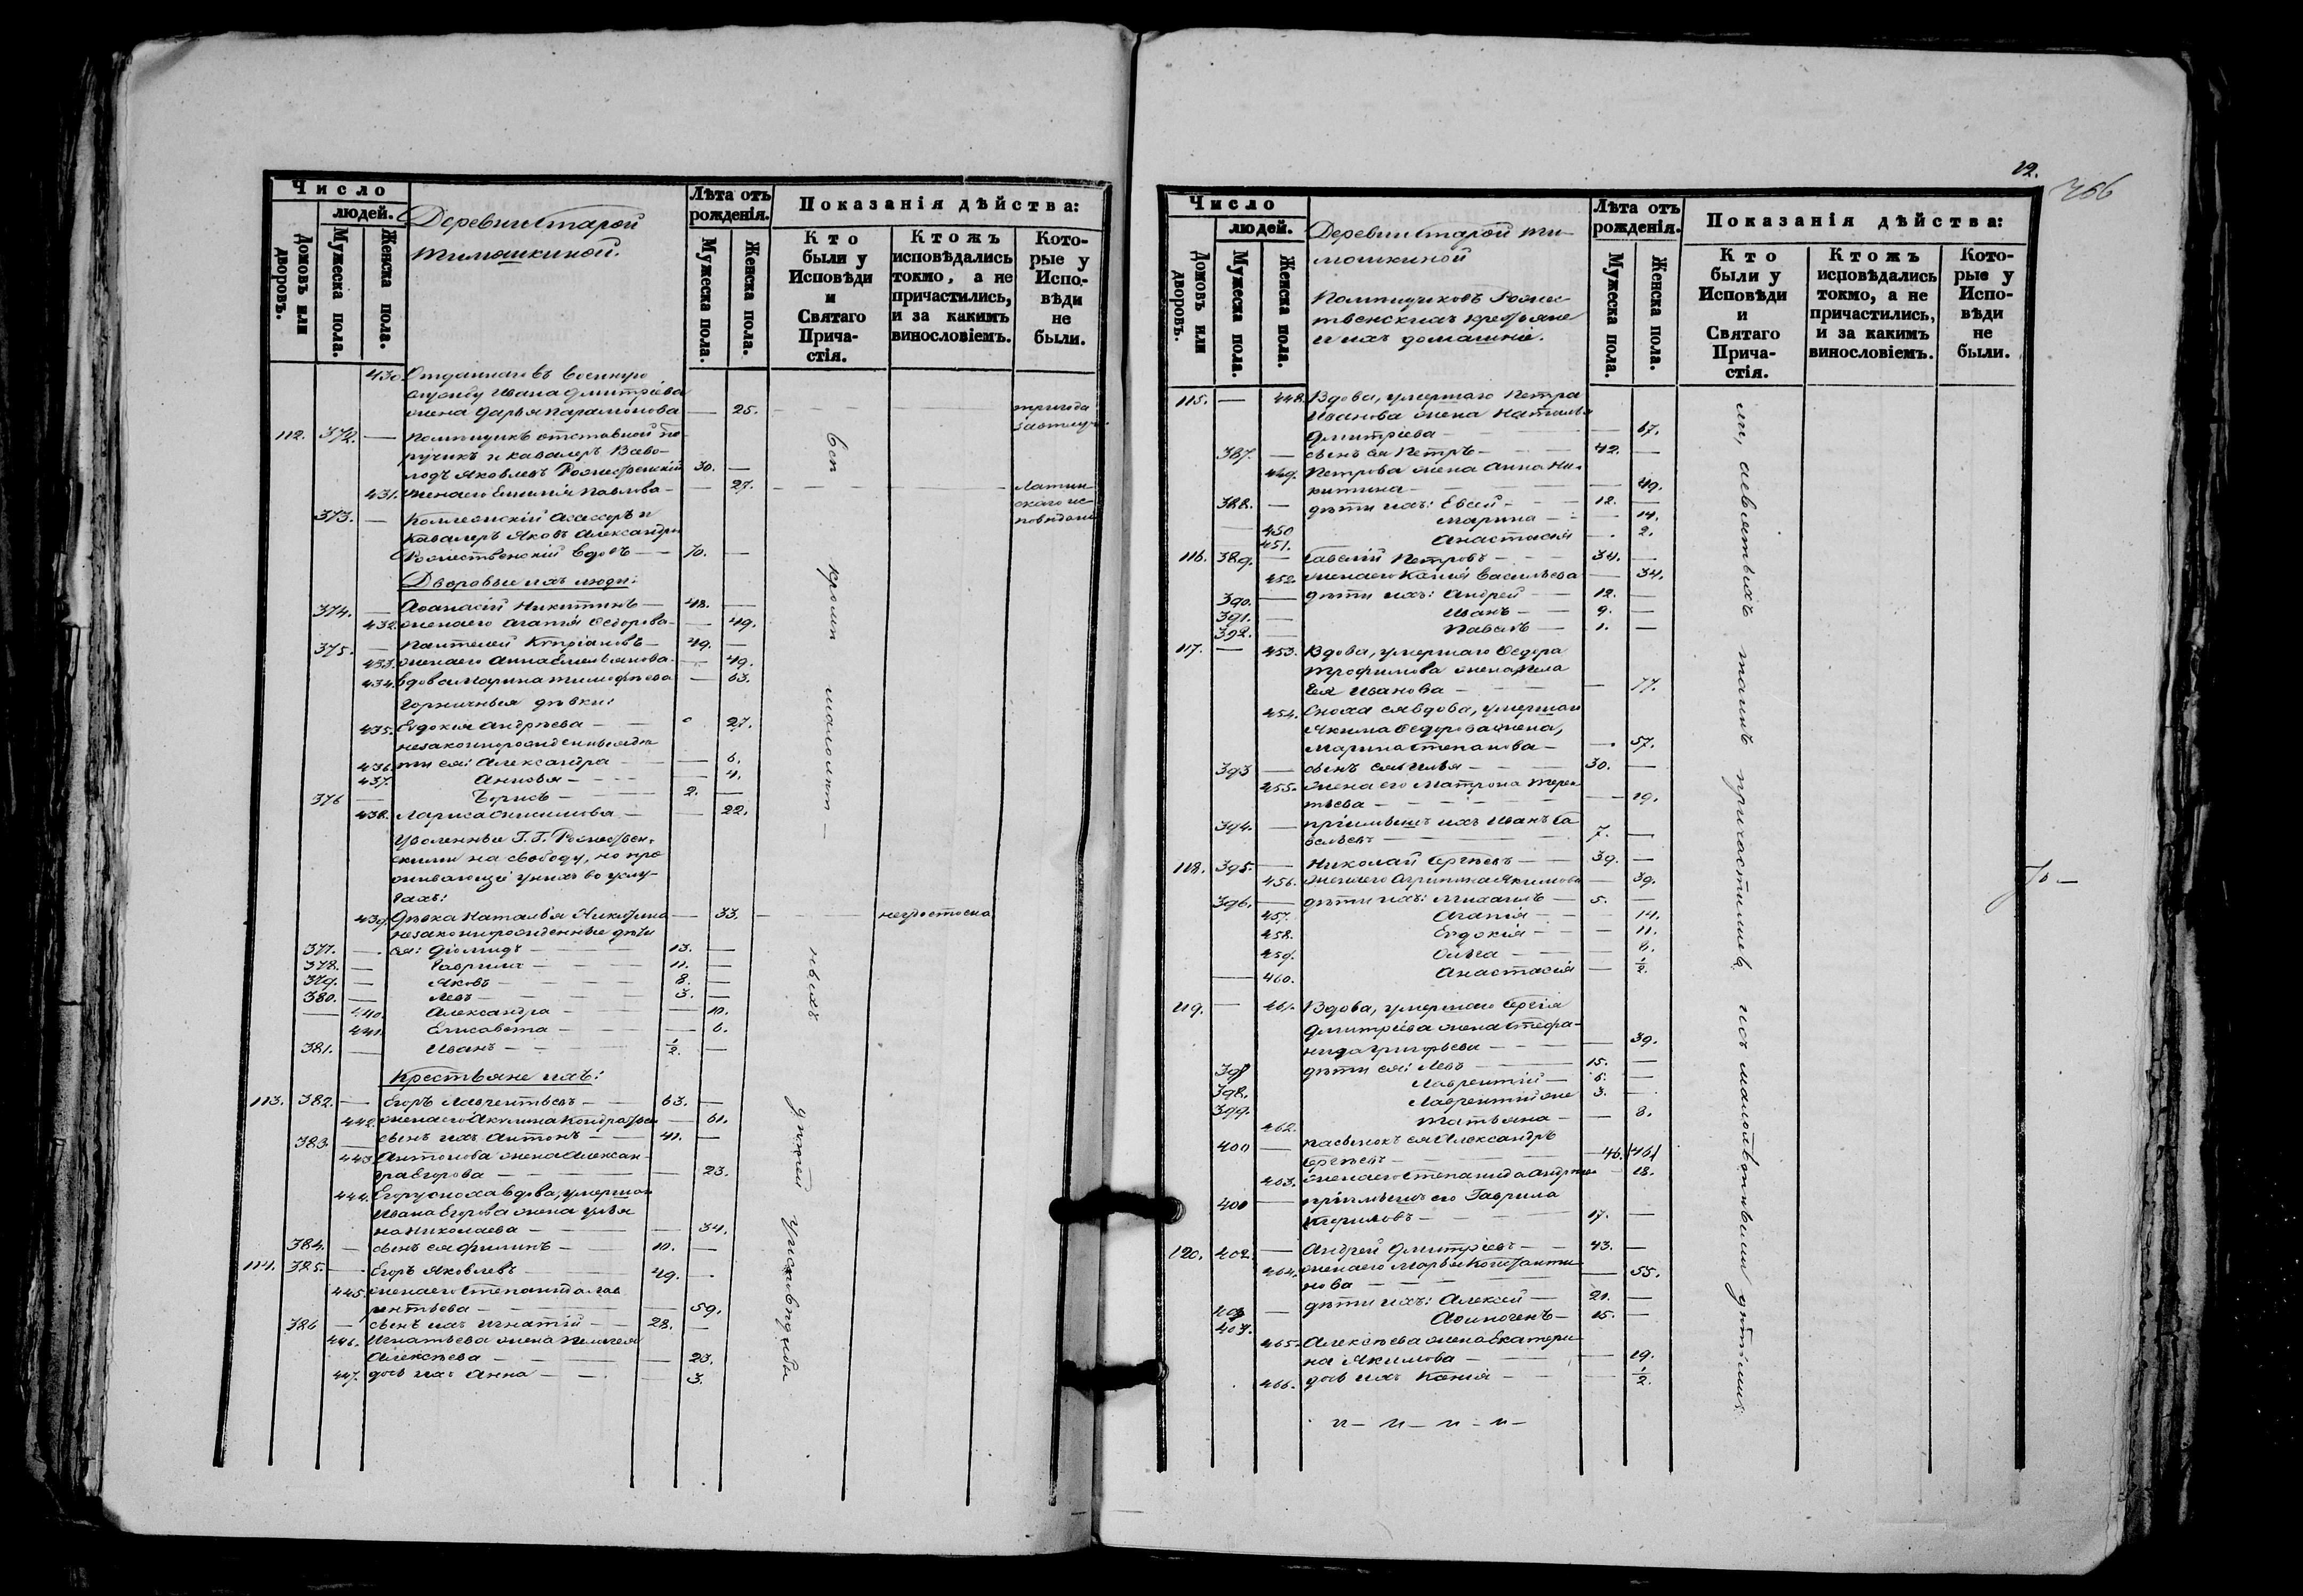 Число
людей.
Домовъ или дворовъ.
Мужеска пола.
Женска пола.
Деревни Старой
Тимошкиной.
Лѣта отъ рожденія.
Мужеска пола.
Женска пола.
Показанія дѣйства:
Кто были у Исповѣди и Святаго Причастія.
Ктожъ исповѣдались токмо, а не причастились, и за какимъ винословіемъ.
Которые у Исповѣди не были.
430 Отданнаго въ военную
службу Ивана Дмитріева
жена Дарья Парамонова — 25.
112. 372. — Помпщикъ отставной по-
ручикъ и кавалеръ Всево-
лодъ Яковлевъ 30. —
431. жена его Емилія Павлова — 27. — Латин-
скаго ис-
373. — Коллежскій Асессоръ и
Кавалеръ Яковъ Александр
Рождественскій вдовъ — 70. —
Дворовые ихъ люди:
374. — Аѳанасій Никитинъ — 48. —
432. жена его Агапія Ѳедорова — 49.
375. — Пантелей Кипріановъ — 49. —
433. жена его Анна Емельянова — 49.
434. вдова Марина Тимофѣева — 63.
Горничныя дѣвки:
435. Евдокія Андреева — 27.
незаконнорожденныя дѣ-
436. ти ея: Александра — 6.
437. — 4.
376 — Борисъ — 2. —
438. Лариса Онисимова — 22.
Уволенные Г.Г. Рождествен-
скими на свободу, но про-
живающіе у нихъ во услу-
гахъ:
439. Дѣвка Наталья Никитина — 33. — не удостоена
незаконнорожденные дѣти
377. — ея: Діомидъ — 13. —
378. — Гаврила — 11. —
379. — Яковъ — 8. —
380. — Левъ — 3. —
— 440. Александра — 10.
441. Елисавета — 6.
381. — Иванъ — 1/2. —
Крестьяне ихъ:
113. 382. — Егоръ Лаврентьевъ — 63. —
442. жена его Акулина Кондратьева — 61.
383 — сынъ ихъ Антонъ — 41. —
443. Антонова жена Алексан-
дра Егорова — 23.
444. Егору сноха вдова, умершаго
Ивана Егорова жена Улья
на Николаева — 34.
384. — сынъ ея Филипъ — 10. —
114. 385. — Егоръ Яковлевъ 49. —
445. жена его Степанида Лав
рентьева — 59.
386 — сынъ ихъ Игнатій — 28. —
446. Игнатьева жена Пелагея
Алексѣева — 23.
447. дочь ихъ Анна — 3.
всѣ кромѣ малолѣтныхъ дѣтей у исповѣди бы
12.
466
Число
людей.
Домовъ или дворовъ.
Мужеска пола.
Женска пола.
Деревни Старой Ти-
мошкиной
Помѣщиковъ Рождес-
твенскихъ крестьяне
и ихъ домашніе.
Лѣта отъ рожденія.
Мужеска пола.
Женска пола.
Показанія дѣйства:
Кто были у Исповѣди и Святаго Причастія.
Ктожъ исповѣдались токмо, а не причастились, и за какимъ винословіемъ.
Которые у Исповѣди не были.
115. — 448. Вдова, умершаго Петра
Иванова жена Наталья
Дмитріева — 67.
387. — сынъ ея Петръ — 42. —
449. Петрова жена Анна Ни-
китина — 49.
388. — дѣти ихъ: Евсей — 12. —
450 Марина — 14.
451. Анастасія — 2.
116. 389. — Савелій Петровъ — 34. —
452. жена его Ксенія Васильева — 34.
390. — дѣти ихъ: Андрей — 12. —
391. — Иванъ — 9. —
392. — Павелъ — 1. —
117. — 453. Вдова, умершаго Ѳедора
Трофимова жена Пела
гея Иванова — 77.
454. Сноха ея вдова, умершаго
Якима Ѳедорова жена,
Марина Степанова — 57.
393 — сынъ ея Илья — 30. —
455. жена его Матрона Терен-
тьева — 19.
394. — пріимышъ ихъ Иванъ Са
вельевъ — 7. —
118. 395. — Николай Сергѣевъ — 39. —
456. жена его Агрипина Якимова — 39.
396. — дѣти ихъ: Михаилъ — 5. —
457. Агапія — 14.
458. Евдокія — 11.
459. Ольга — 6.
— 460. Анастасія — 1/2.
119. — 461. Вдова, умершаго Сергія
Дмитріева жена Стефа-
нида Григорьева — 39.
398 дѣти ея: Левъ — 15. —
398. Лаврентій — 6. —
399. Лаврентій же 3. —
462. Татьяна — 8.
400 — пасынокъ ея Александръ
Сергѣевъ — 46. (46)
463. жена его Степанида Андреева — 18.
400 — пріимышъ его Гаврила
Кириловъ — 17. —
120. 402. — Андрей Дмитріевъ — 43. —
464. жена его Марья Константи
нова — 55.
403 — дѣти ихъ: Алексей — 21. —
404. Аѳиногенъ — 15. —
465. Алексѣева жена Екатери-
на Якимова — 19.
466. дочь ихъ Ксенія — 1/2.
ли, а святыхъ таинъ причастились и съ малолѣтными дѣтьми.